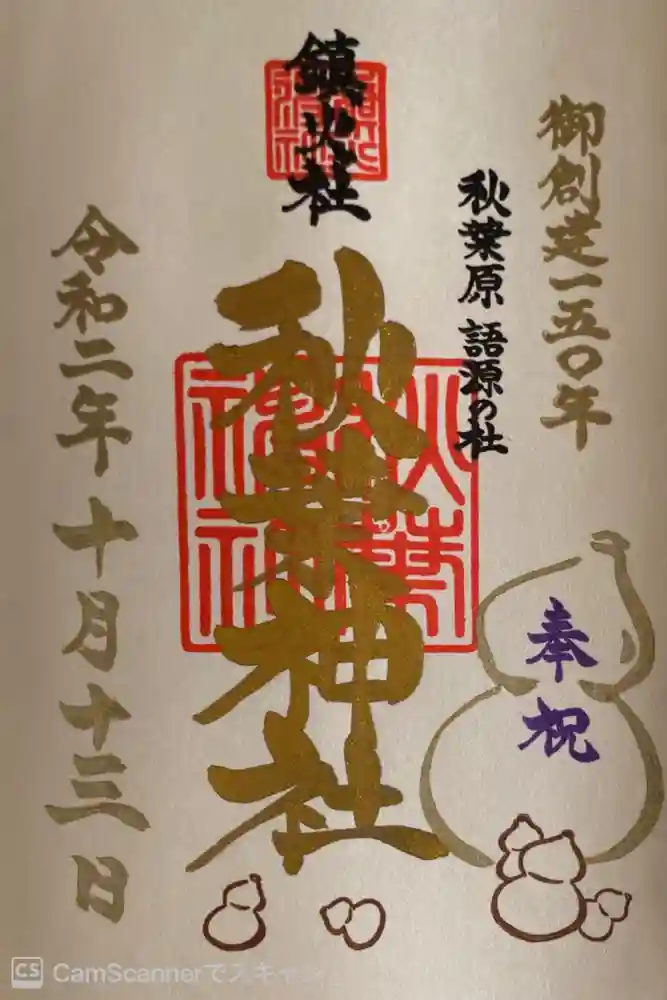 御創建一五〇年
秋葉原 語源の社
奉祝
鎮火社
秋葉神社
令和二年十月十三日
秋葉神社
CS CamScannerでスキャン